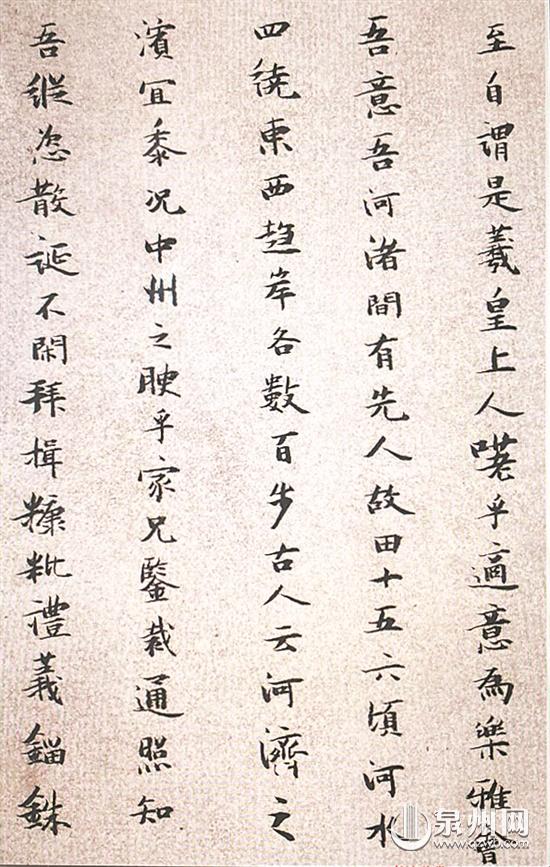 至自謂是羲皇上人嗟乎適意為樂雅會
吾意吾河渚間有先人故田十五六頃河水
四繞東西趨岸各數百步古人云河濟之
濱宜黍况中州之腴乎家兄鑒裁通照知
吾縱恣散誕不閑拜揖糠粃禮義錙銖
泉州网
www.qzwb.com